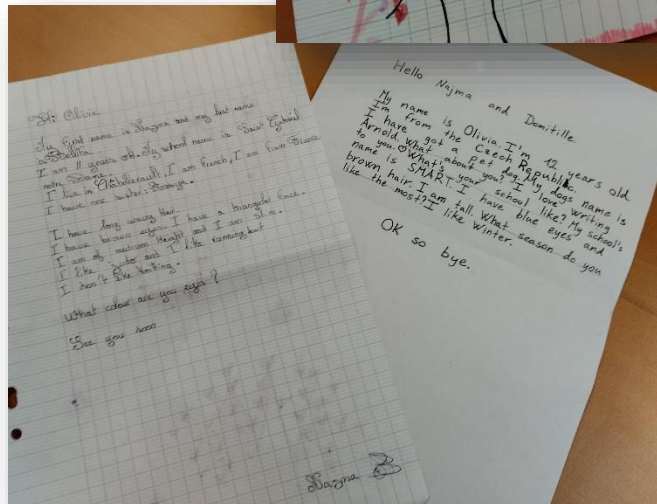 Hi Olivia
My first name is Nazma and my last name
is
I am 11 years old. My school name is Saint Gabriel
notre Dame.
I live in Châtellerault, I am french, I am from France
I have one sister:
I have long wavy hair.
I have brown eyes. I have a triangular face.
I am of medium height and I am slim.
I like judo and I like running but
I don't like knitting.
What colour are you eyes?
See you soon
Nazma
Hello Najma and Domitille.
My name is Olivia. I'm 12 years old.
I'm from the Czech Republic.
I have got a pet dog. My dogs name is
Arnold. What about you? I love writing
to you. What's your school like? My school's
name is SMART. I have blue eyes and
brown hair. I am tall. What season do you
like the most? I like Winter.
OK so bye.